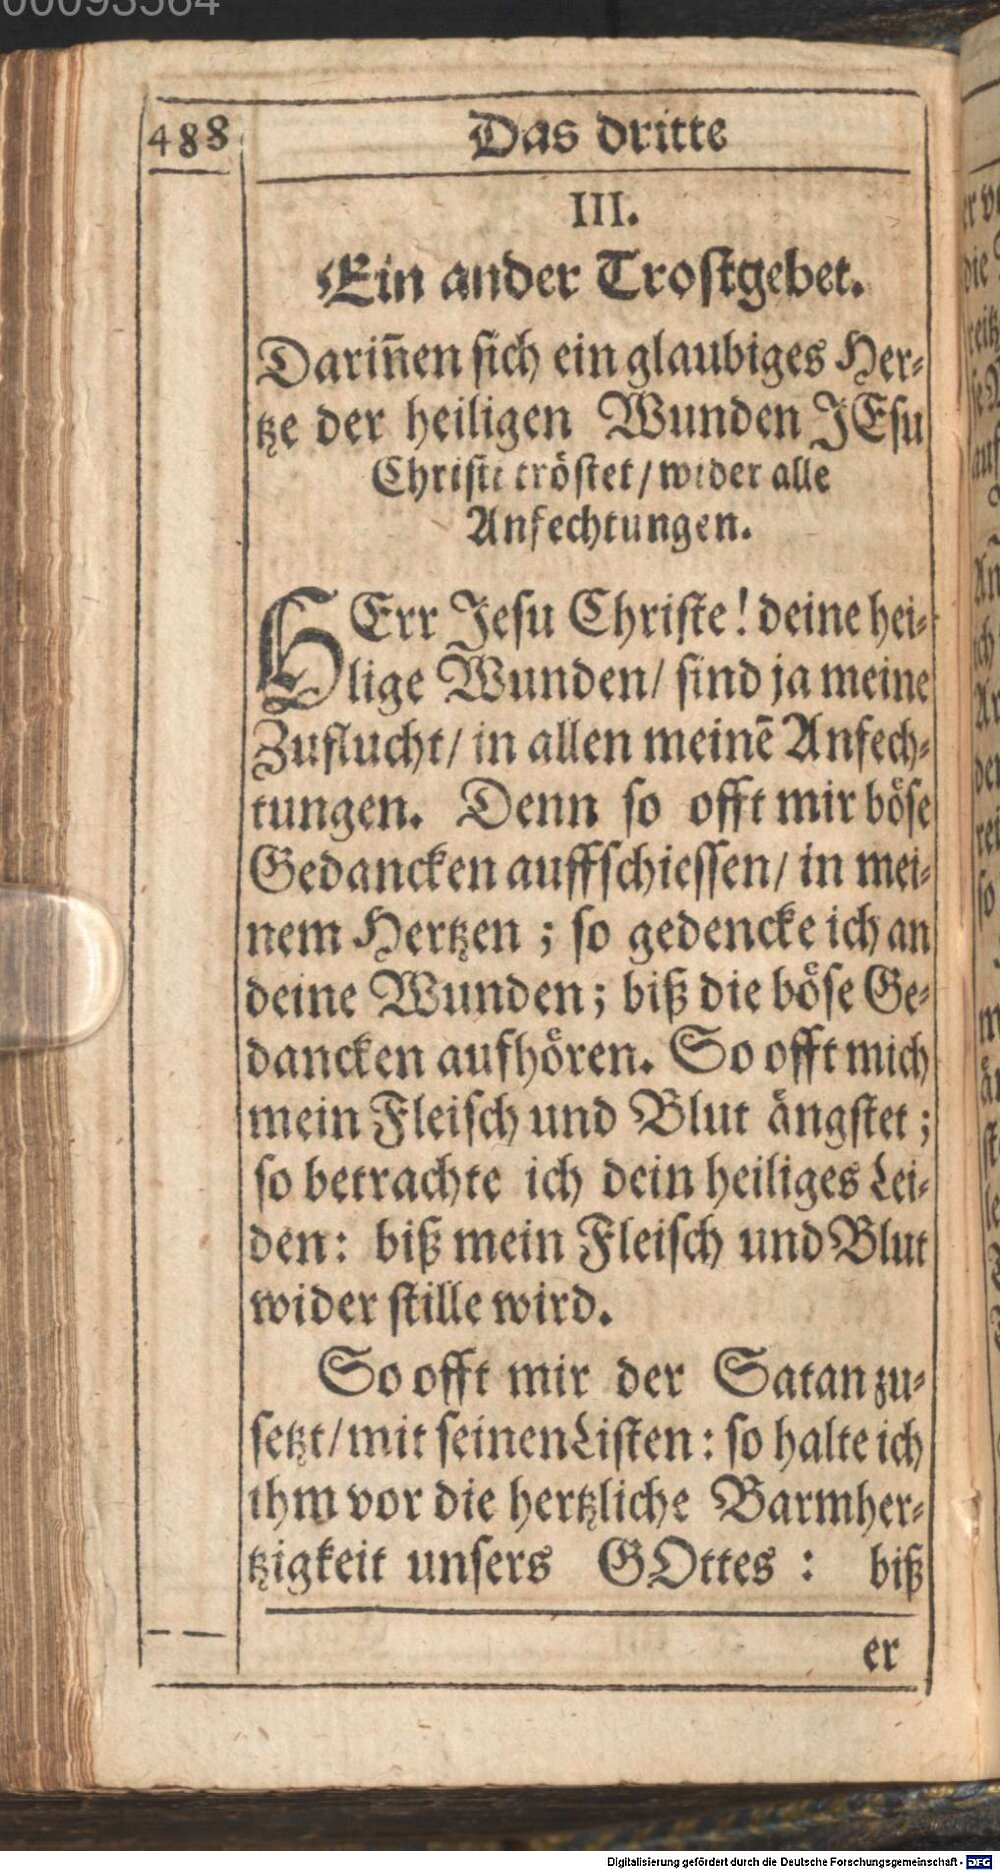 00093564
488
Das dritte
III.
Ein ander Trostgebet.
Dariñen sich ein glaubiges Her-
tze der heiligen Wunden JEsu
Christi tröstet/ wider alle
Anfechtungen.
HErr Jesu Christe! deine hei-
lige Wunden/ sind ja meine
Zuflucht/ in allen meinē Anfech-
tungen. Denn so offt mir böse
Gedancken auffschiessen/ in mei-
nem Hertzen ; so gedencke ich an
deine Wunden; biß die böse Ge-
dancken aufhören. So offt mich
mein Fleisch und Blut ängstet ;
so betrachte ich dein heiliges Lei-
den: biß mein Fleisch und Blut
wider stille wird.
So offt mir der Satan zu-
setzt/ mit seinen Listen: so halte ich
ihm vor die hertzliche Barmher-
tzigkeit unsers GOttes : biß
er
Digitalisierung gefördert durch die Deutsche Forschungsgemeinschaft - DFG